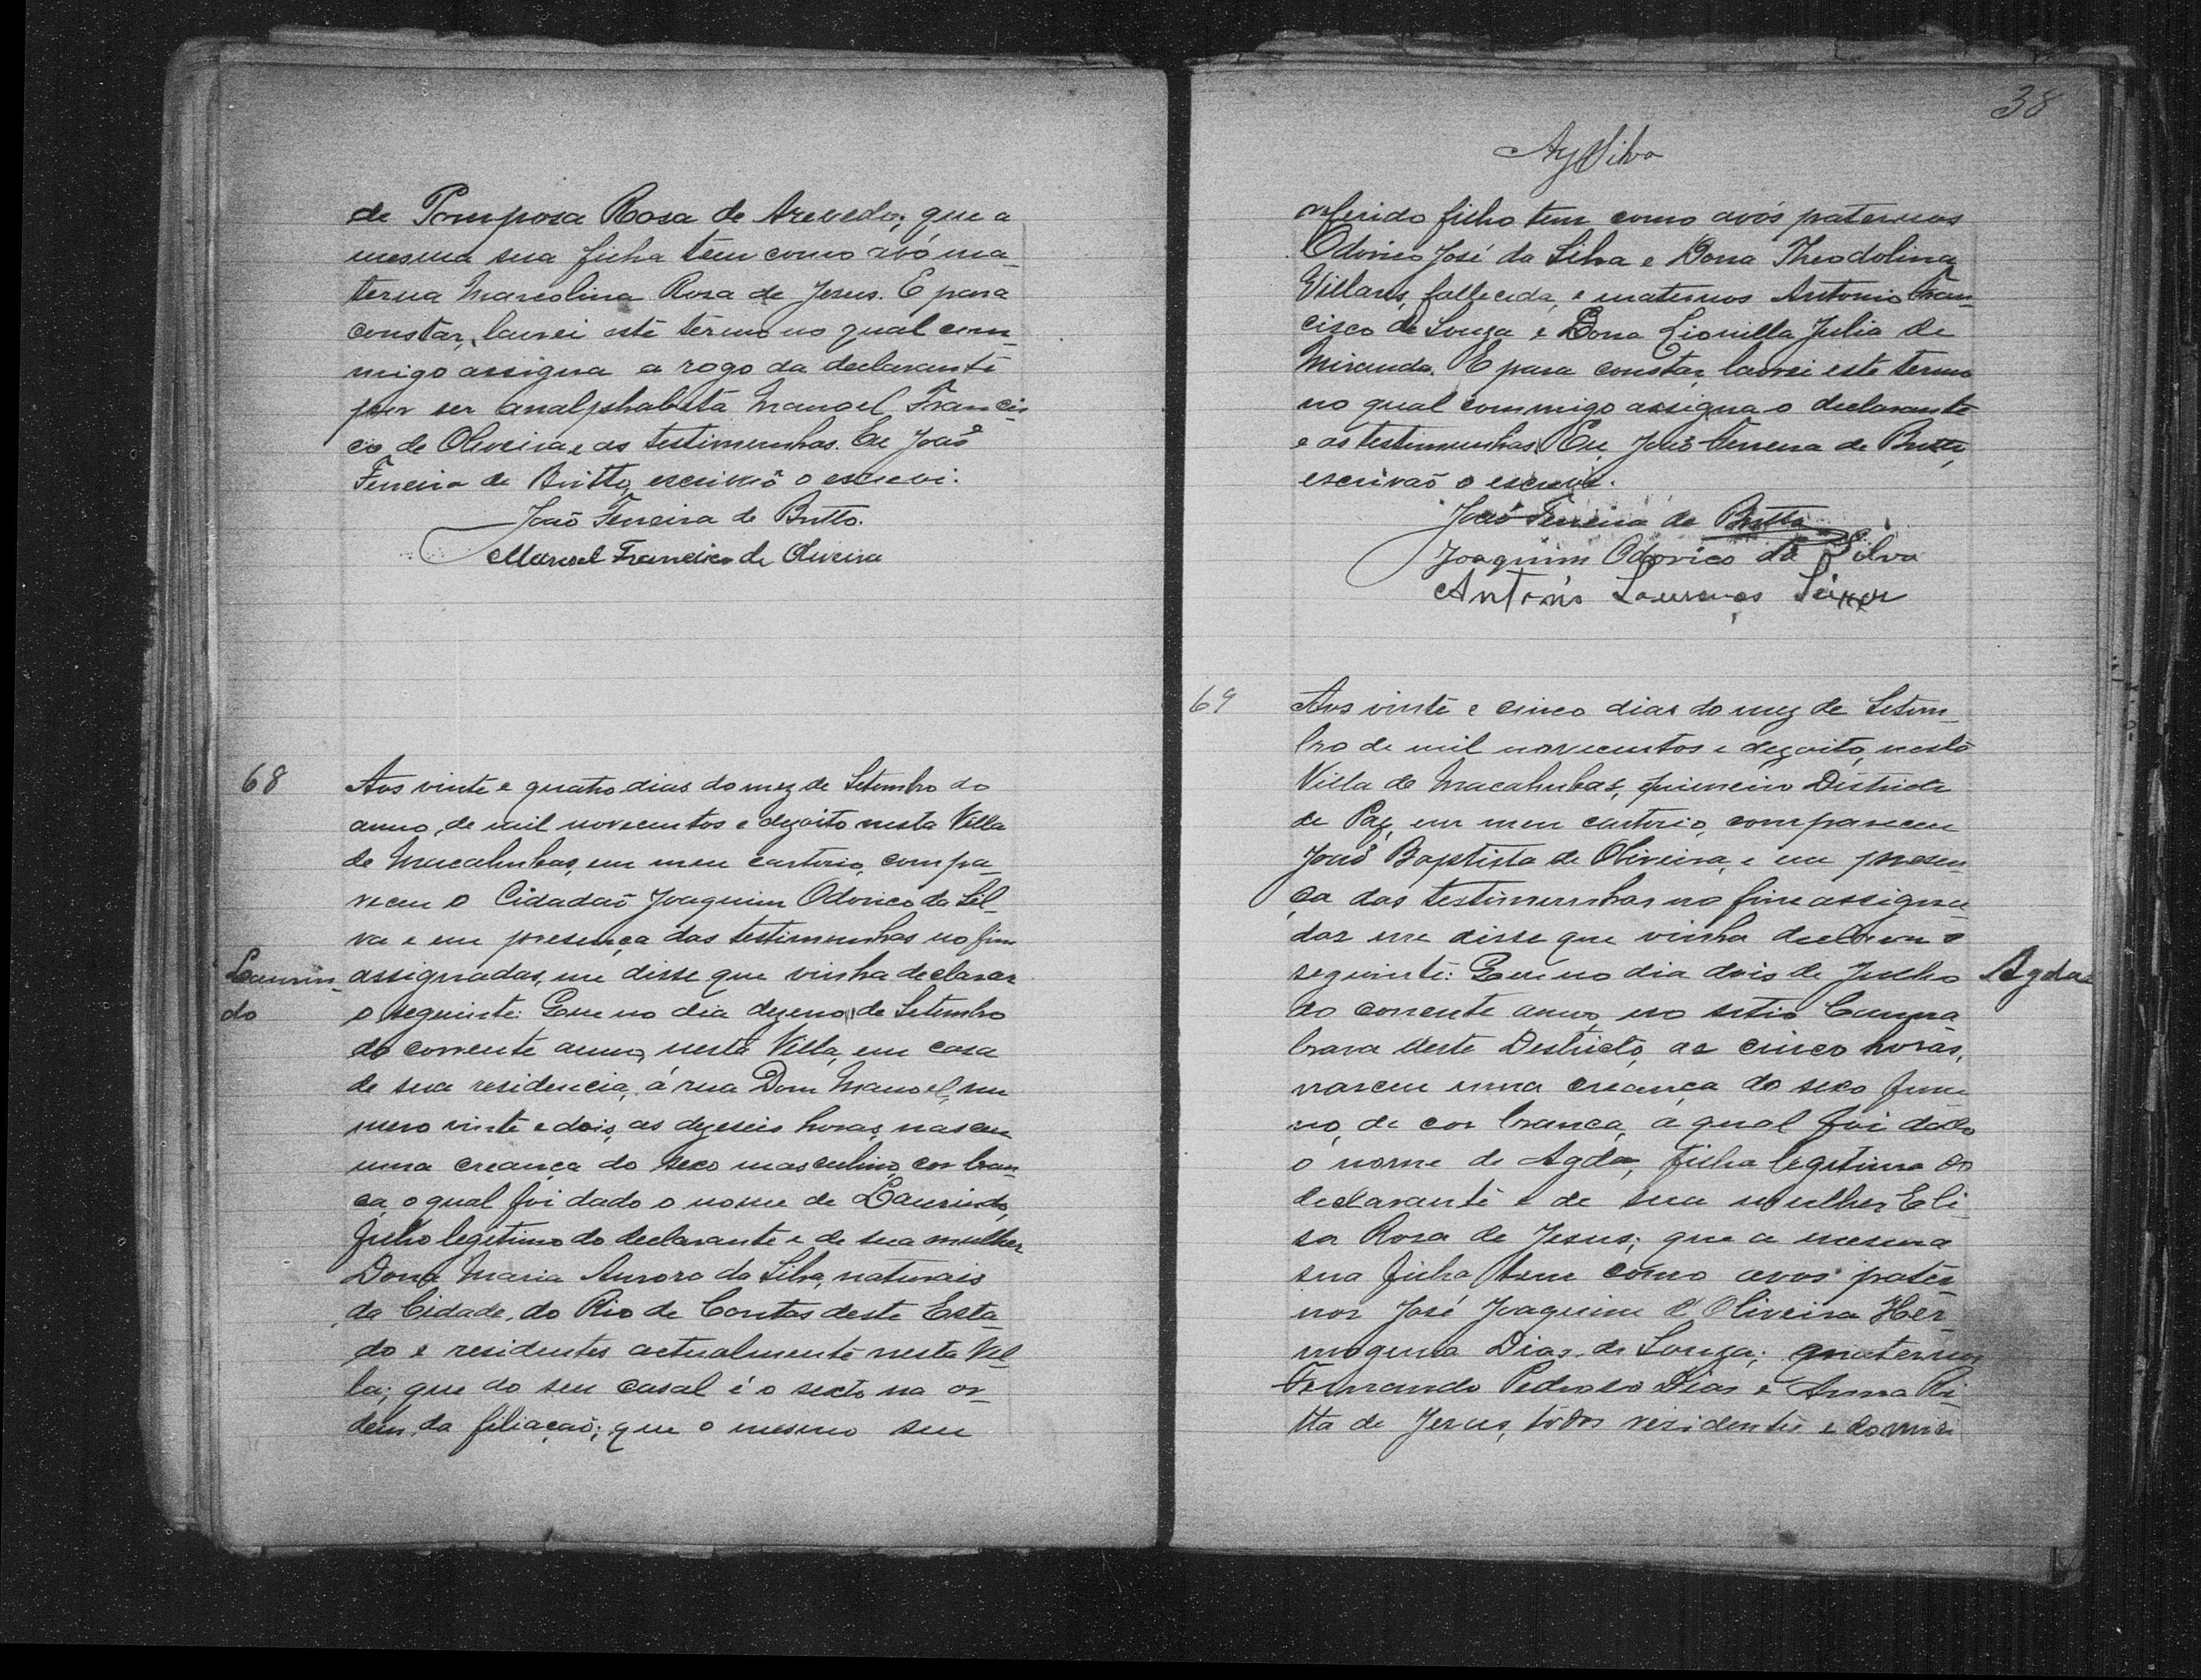 de Pomposa Rosa de Azevedo; que a
mesma sua filha tem como avó ma-
terna Marcolina Rosa de Jesus. E para
constar, lavrei este termo no qual com-
migo assigna a rogo da declarante
por ser analphabeta Manoel Francis-
co de Oliveira e as testimunhas. Eu João
Ferreira de Britto, escrivão o escrevi.
João Ferreira de Britto.
Manoel Francisco de Oliveira
68
Aos vinte e quatro dias do mez de Setembro do
anno de mil novecentos e dezoito nesta Villa
de Macahubas, em meu cartorio, compa-
receu o Cidadão Joaquim Odorico da Sil-
va e em presença das testimunhas no fim
Laurin-
do
assignadas, me disse que vinha declarar
o seguinte: Que no dia dezenove de Setembro
do corrente anno, nesta Villa, em casa
de sua residencia, á rua Dom Manoel, nu
mero vinte e dois, as dezeseis horas, nasceu
uma creança do sexo masculino, cor bran-
ca, o qual foi dado o nome de Laurindo,
filho legitimo do declarante e de sua mulher
Dona Maria Aurora da Silva, naturais
da Cidade do Rio de Contas deste Esta-
do e residentes actualmente nesta Vil-
la; que do seu casal é o sexto na or-
dem da filiação; que o mesmo seu
38
referido filho tem como avós paternos
Odorico José da Silva e Dona Theodolina
Villares, fallecida, e maternos Antonio Fran-
cisco de Souza e Dona Lionilla Julia de
Miranda. E para constar, lavrei este termo
no qual commigo assigna o declarante
e as testimunhas. Eu, João Ferreira de Britto,
escrivão o escrevi.
João Ferreira de Britto
Joaquim Odorico da Silva
Antonio
69
Aos vinte e cinco dias do mez de Setem-
bro de mil novecentos e dezoito, nesta
Villa de Macahubas, primeiro Districto
de Paz, em meu cartorio, compareceu
João Baptista de Oliveira, e em presen-
ça das testimunhas no fim assigna-
das me disse que vinha declarar o
seguinte: Que no dia dois de Julho
Agda
do corrente anno, no sitio Canna-
brava deste Destricto, as cinco horas,
nasceu uma creança do sexo femi
no, de cor branca, a qual foi dado
o nome de Agda, filha legitima do
declarante e de sua mulher Eli-
sa Rosa de Jesus; que a mesma
sua filha tem como avos pater-
nos José Joaquim d'Oliveira Her-
mogena Dias de Souza; maternos
Fernando Pedroso Dias e Anna Ri-
tta de Jesus, todos residentes e domici